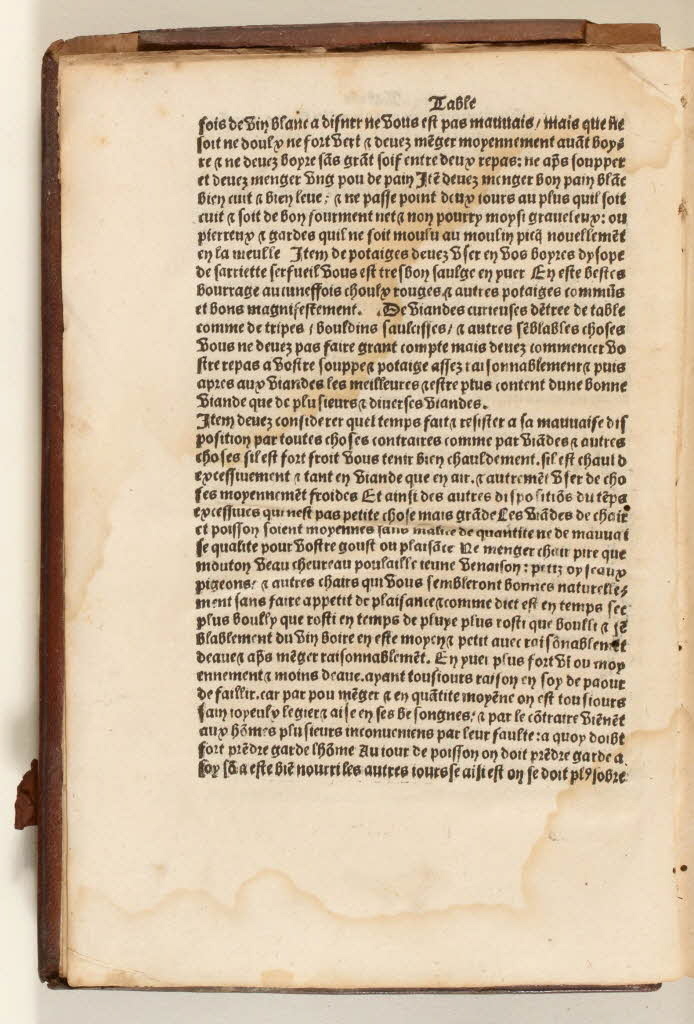 Table
fois de vin blanc a disner ne vous est pas mauuais/ mais que ne
soit ne doulx ne fort vert ⁊ deuez mẽger moyennement auãt boy⸗
re ⁊ ne deuez boyre sãs grãt soif entre deux repas: ne aps̃ soupper
et deuez menger vng pou de pain Jtẽ deuez menger bon pain blãc
bien cuit ⁊ bien leue: ⁊ ne passe point deux iours au plus quil soit
cuit ⁊ soit de bon fourment net ⁊ non pourry moysi graueleux: ou
pierreux ⁊ gardes quil ne soit moulu au moulin picq̃ nouellemẽt
en la meulle Jtem de potaiges deuez vser en vos boyres dysope
de sarriette serfueil vous est tresbon saulge en yuer En este bestes
bourrage aucuneffois choulx rouges ⁊ autres potaiges commũs
et bons magnifestement. De viandes curieuses dẽtree de table
comme de tripes / bouldins saulcisses/ ⁊ autres sẽblables choses
vous ne deuez pas faire grant compte mais deuez commencer vo
stre repas a vostre souppe ⁊ potaige assez raisonnablement ⁊ puis
apres aux viandes les meilleures ⁊ estre plus content dune bonne
viande que de plusieurs ⁊ diuerses viandes.
Jtem deuez considerer quel temps fait ⁊ resister a sa mauuaise dis
position par toutes choses contraires comme par viãdes ⁊ autres
choses sil est fort froit vous tenir bien chauldement. sil est chauld
excessiuement ⁊ tant en viande que en air. ⁊ autremẽt vser de cho
ses moyennemẽt froides Et ainsi des autres dispositiõs du tẽps
excessiues qui nest pas petite chose mais grãde Les viãdes de chair
et poisson soient moyennes sans malice de quantite ne de mauuai
se qualite pour vostre goust ou plaisãce Ne menger chair pire que
mouton veau cheureau poulaille ieune venaison: petiz oyseaux
pigeons: ⁊ autres chairs qui vous sembleront bonnes naturelle⸗
ment sans faire appetit de plaisance ⁊ comme dict est en temps sec
plus boully que rosti en temps de pluye plus rosti que boulli ⁊ sẽ
blablement du vin boire en este moyen ⁊ petit auec raisõnablement
deaue ⁊ aps̃ mẽger raisonnablemẽt. En yuer plus fort vĩ ou moy
ennement ⁊ moins deaue. ayant tousiours raison en soy de paour
de faillir. car par pou mẽger ⁊ en quãtite moyẽne on est tousiours
sain ioyeulx legier ⁊ aise en ses besongnes: ⁊ par le cõtraire viẽnẽt
aux hõmes plusieurs inconueniens par leur faulte: a quoy doibt
fort prẽdre garde lhõme Au iour de poisson on doit prẽdre garde a
soy sõ a este biẽ nourri les autres iours se ainsi est on se doit plꝰ sobre